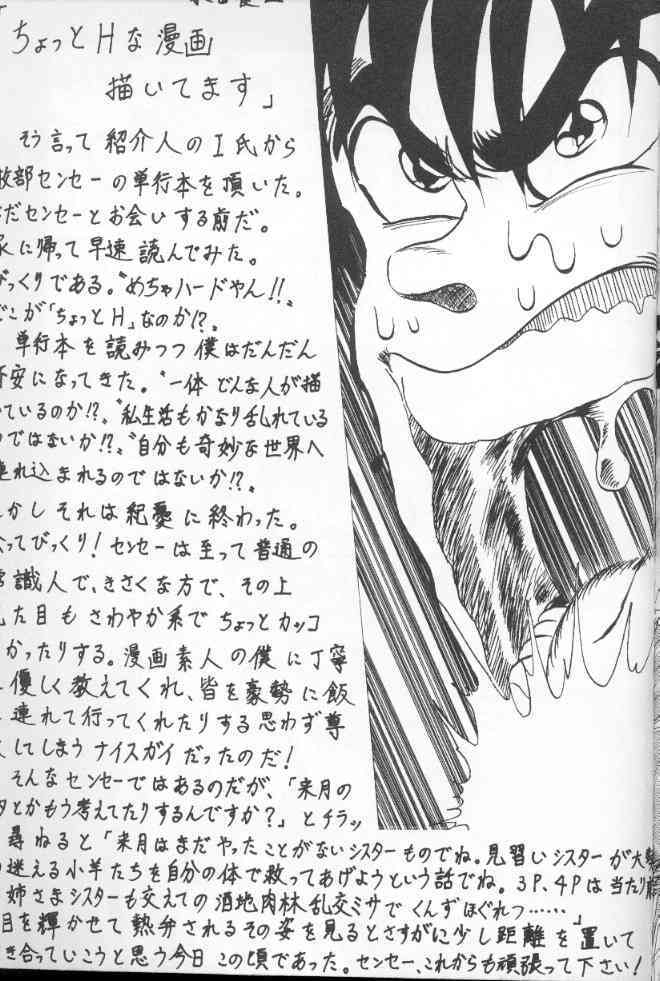 ちょっとHな漫画
描いてます」
そう言って紹介人のI氏から
部センセーの単行本を頂いた。
だセンセーとお会いする前だ。
に帰って早速読んでみた。
びっくりである。〝めちゃハードやん!!〟
どこが「ちょっとH」なのか!?
単行本を読みつつ僕はだんだん
安になってきた。〝一体どんな人が描
ているのか!?〟〝私生活もかなり乱れている
ではないか!?〟〝自分も奇妙な世界へ
れ込まれるのではないか!?〟
かしそれは紀憂に終わった。
ってびっくり!センセーは至って普通の
識人で、きさくな方で、その上
た目もさわやか系でちょっとカッコ
かったりする。漫画素人の僕に丁寧
優しく教えてくれ、皆を豪勢に飯
連れて行ってくれたりする思わず尊
してしまうナイスガイだったのだ!
そんなセンセーではあるのだが、「来月の
とかもう考えてたりするんですか?」とチラッ
尋ねると「来月はまだやったことがないシスターものでね。見習いシスターが大勢
迷える小羊たちを自分の体で救ってあげようという話でね。3P、4Pは当たり前
姉さまシスターも交えての酒地肉林乱交ミサでくんずほぐれつ……」
目を輝かせて熱弁されるその姿を見るとさすがに少し距離を置いて
き合っていこうと思う今日この頃であった。センセー、これからも頑張って下さい!